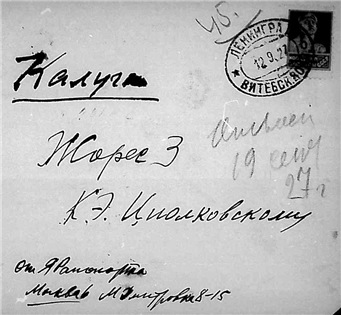 45.
ЛЕНИНГРАД
12.9.27
ВИТЕБСКАЯ
Калуга
19 сент
27 г
Жорес 3
К. Э. Циолковскому
от Я Рапопорта
Москва 6 М Дмитровка 8-15